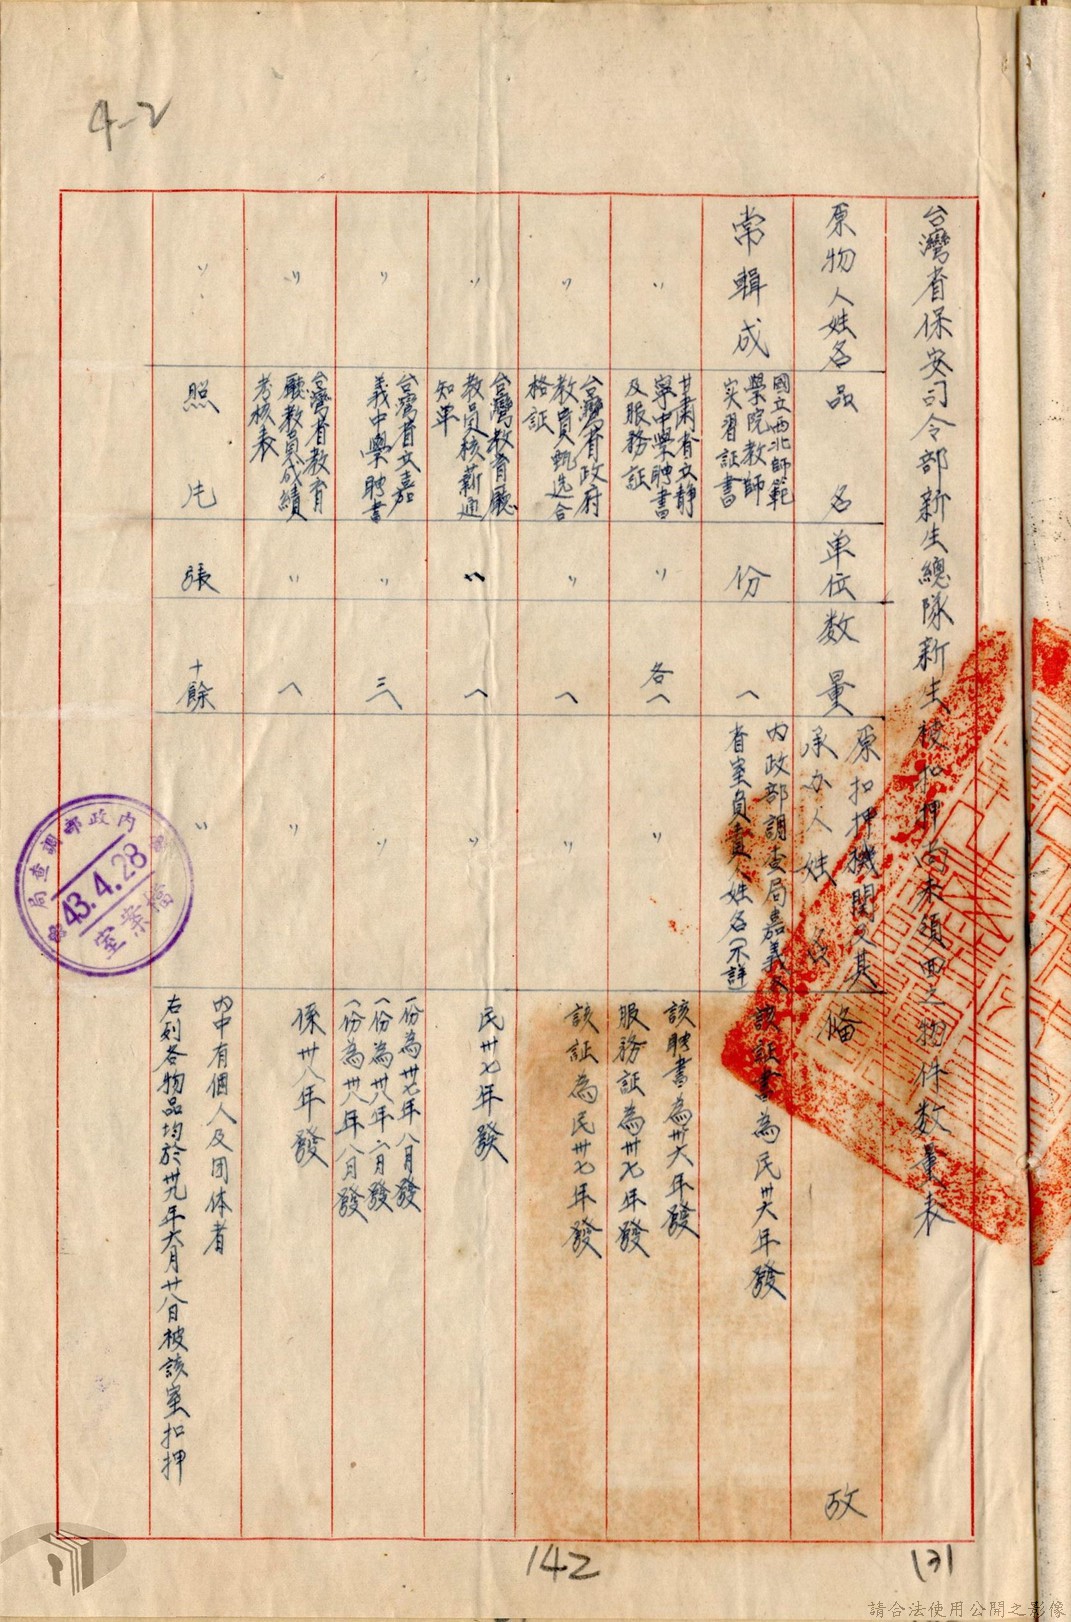 4-2
台灣省保安司令部新生總隊新生被扣押尚未領回之物件数量表
原物人姓名
品名
单位
数量
原扣押機関及其
承办人姓名
備攷
常輯成
國立西北師範
學院教師
实習証書
份
一
内政部調查局嘉義
省室負責人姓名(不詳
該証書為民卅六年發
〃
甘肅省立静
寧中學聘書
及服務証
〃
各一
〃
該聘書為卅六年發
服務証為卅七年發
〃
台灣省政府
教員甄选合
格証
〃
一
〃
該証為民卅七年發
〃
台灣教育廳
教員核薪通
知单
〃
一
〃
民卅七年發
〃
台灣省立嘉
義中學聘書
〃
三
〃
一份為卅七年八月發
一份為卅八年六月發
一份為卅八年八月發
〃
台灣省教育
廳教員成績
考核表
〃
一
〃
係卅八年發
〃
照片
張
十餘
〃
内中有個人及团体者
右列各物品均於卅九年六月廿八日被該室扣押
内政部調查局
43.4.28
檔案室
142
131
請合法使用公開之影像